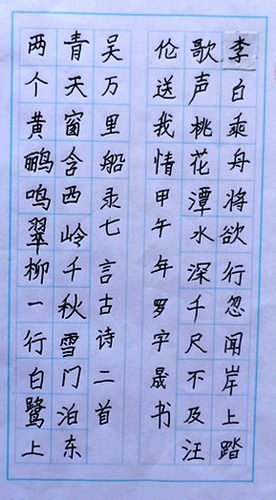 两个黄鹂鸣翠柳一行白鹭上
青天窗含西岭千秋雪门泊东
吴万里船录七言古诗二首
李白乘舟将欲行忽闻岸上踏
歌声桃花潭水深千尺不及汪
伦送我情甲午年罗宇晟书